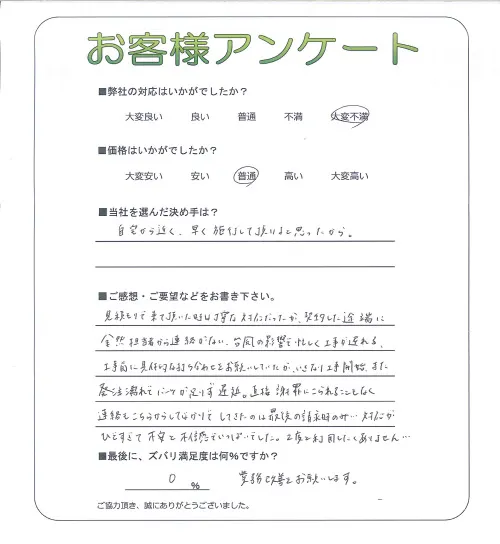 お客様アンケート
■弊社の対応はいかがでしたか？
大変良い 良い 普通 不満 大変不満
■価格はいかがでしたか？
大変安い 安い 普通 高い 大変高い
■当社を選んだ決め手は？
自宅から近く、早く施行して頂けると思ったから。
■ご感想・ご要望などをお書き下さい。
見積もりで来て頂いた時は丁寧な対応だったが、契約した途端に
全然担当者から連絡がない、台風の影響で忙しく工事が遅れる、
工事前に具体的な打ち合わせをお願いしていたが、いきなり工事開始、また
発注漏れでパーツが足りず遅延。直接謝罪にこられることもなく
連絡もこちらからしてばかりで してきたのは最後の請求時のみ…対応が
ひどすぎて不安と不信感でいっぱいでした。2度と利用したくありません…
■最後に、ズバリ満足度は何％ですか？
0 % 業務改善をお願いします。
ご協力頂き、誠にありがとうございました。